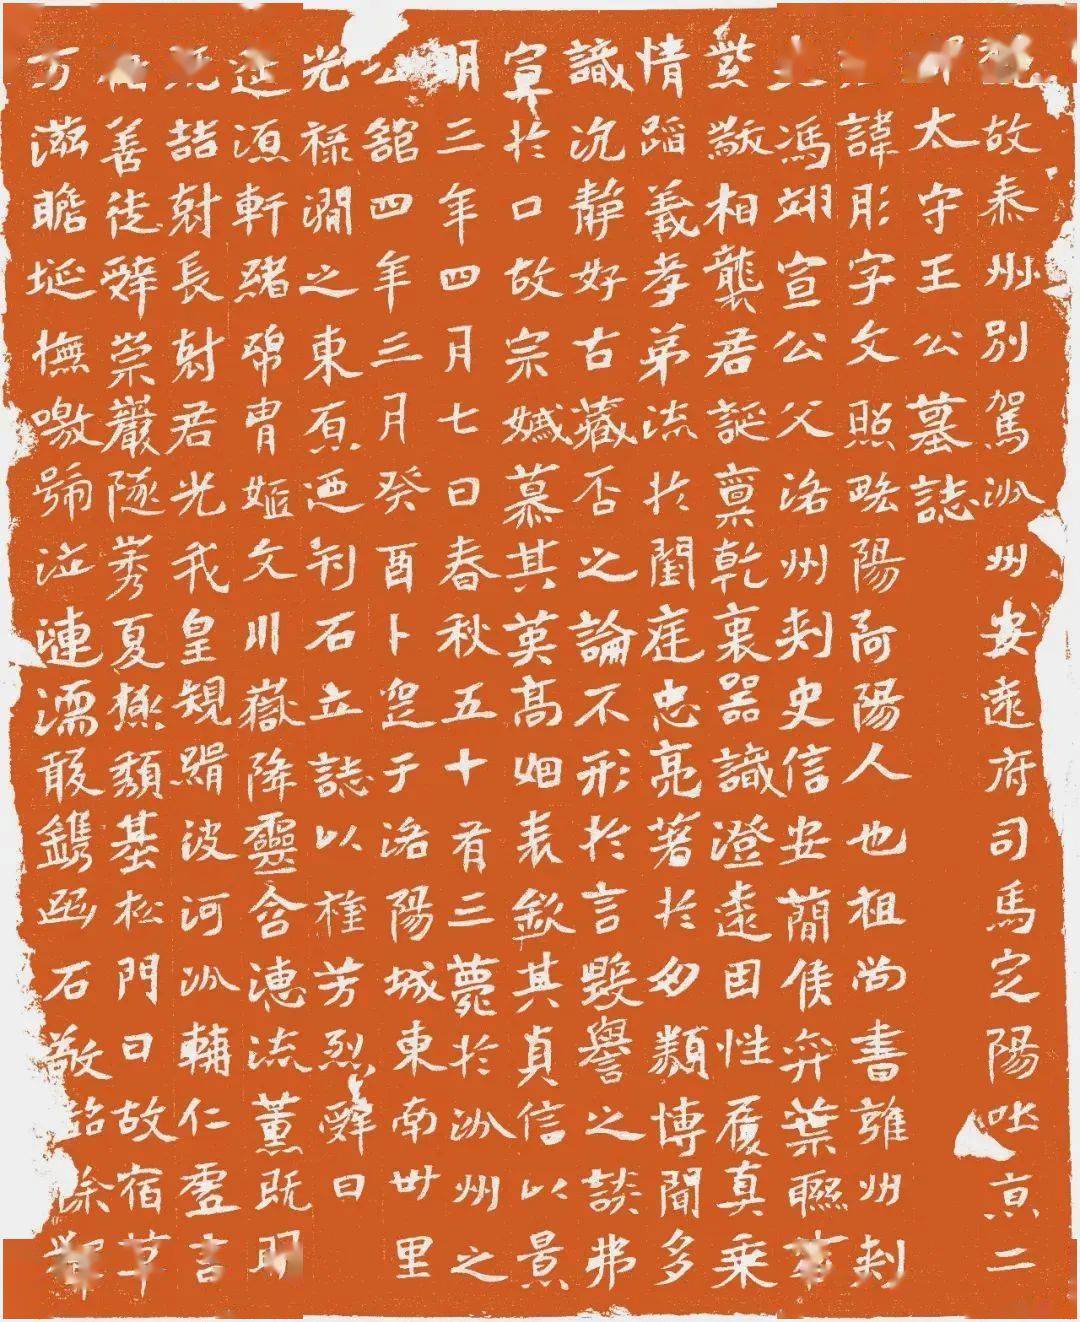 故泰州別駕汾州安遠府司馬定陽吐京二
太守王公墓誌
諱彤字文照略陽阿陽人也祖尚書雍州刾
史馮翊宣公父洛州刾史信安簡侯弈葉聯
紫黻相襲君誕稟乾裏器識澄遠因性履真乘
情蹈義孝弟流於閨庭忠亮著於匆類博聞多
識沉靜好古藏否之論不形於言毀譽之談弗
宣於口故宗媙慕其英高姻表欽其貞信以景
明三年四月七日春秋五十有三薨於汾州之
公館四年三月癸酉卜窆于洛陽城東南丗里
光祿澗之東原迺刊石立誌以旌芳烈辭曰
延源軒緒帝胄姬文川嶽降靈含德流薰既明
既喆尅長尅君光我皇規緝波河汾輔仁虛言
善徒辭崇巖隧夏頹基松門日故宿草
方滋瞻埏撫噭號泣漣濡敢鐫幽石敬銘